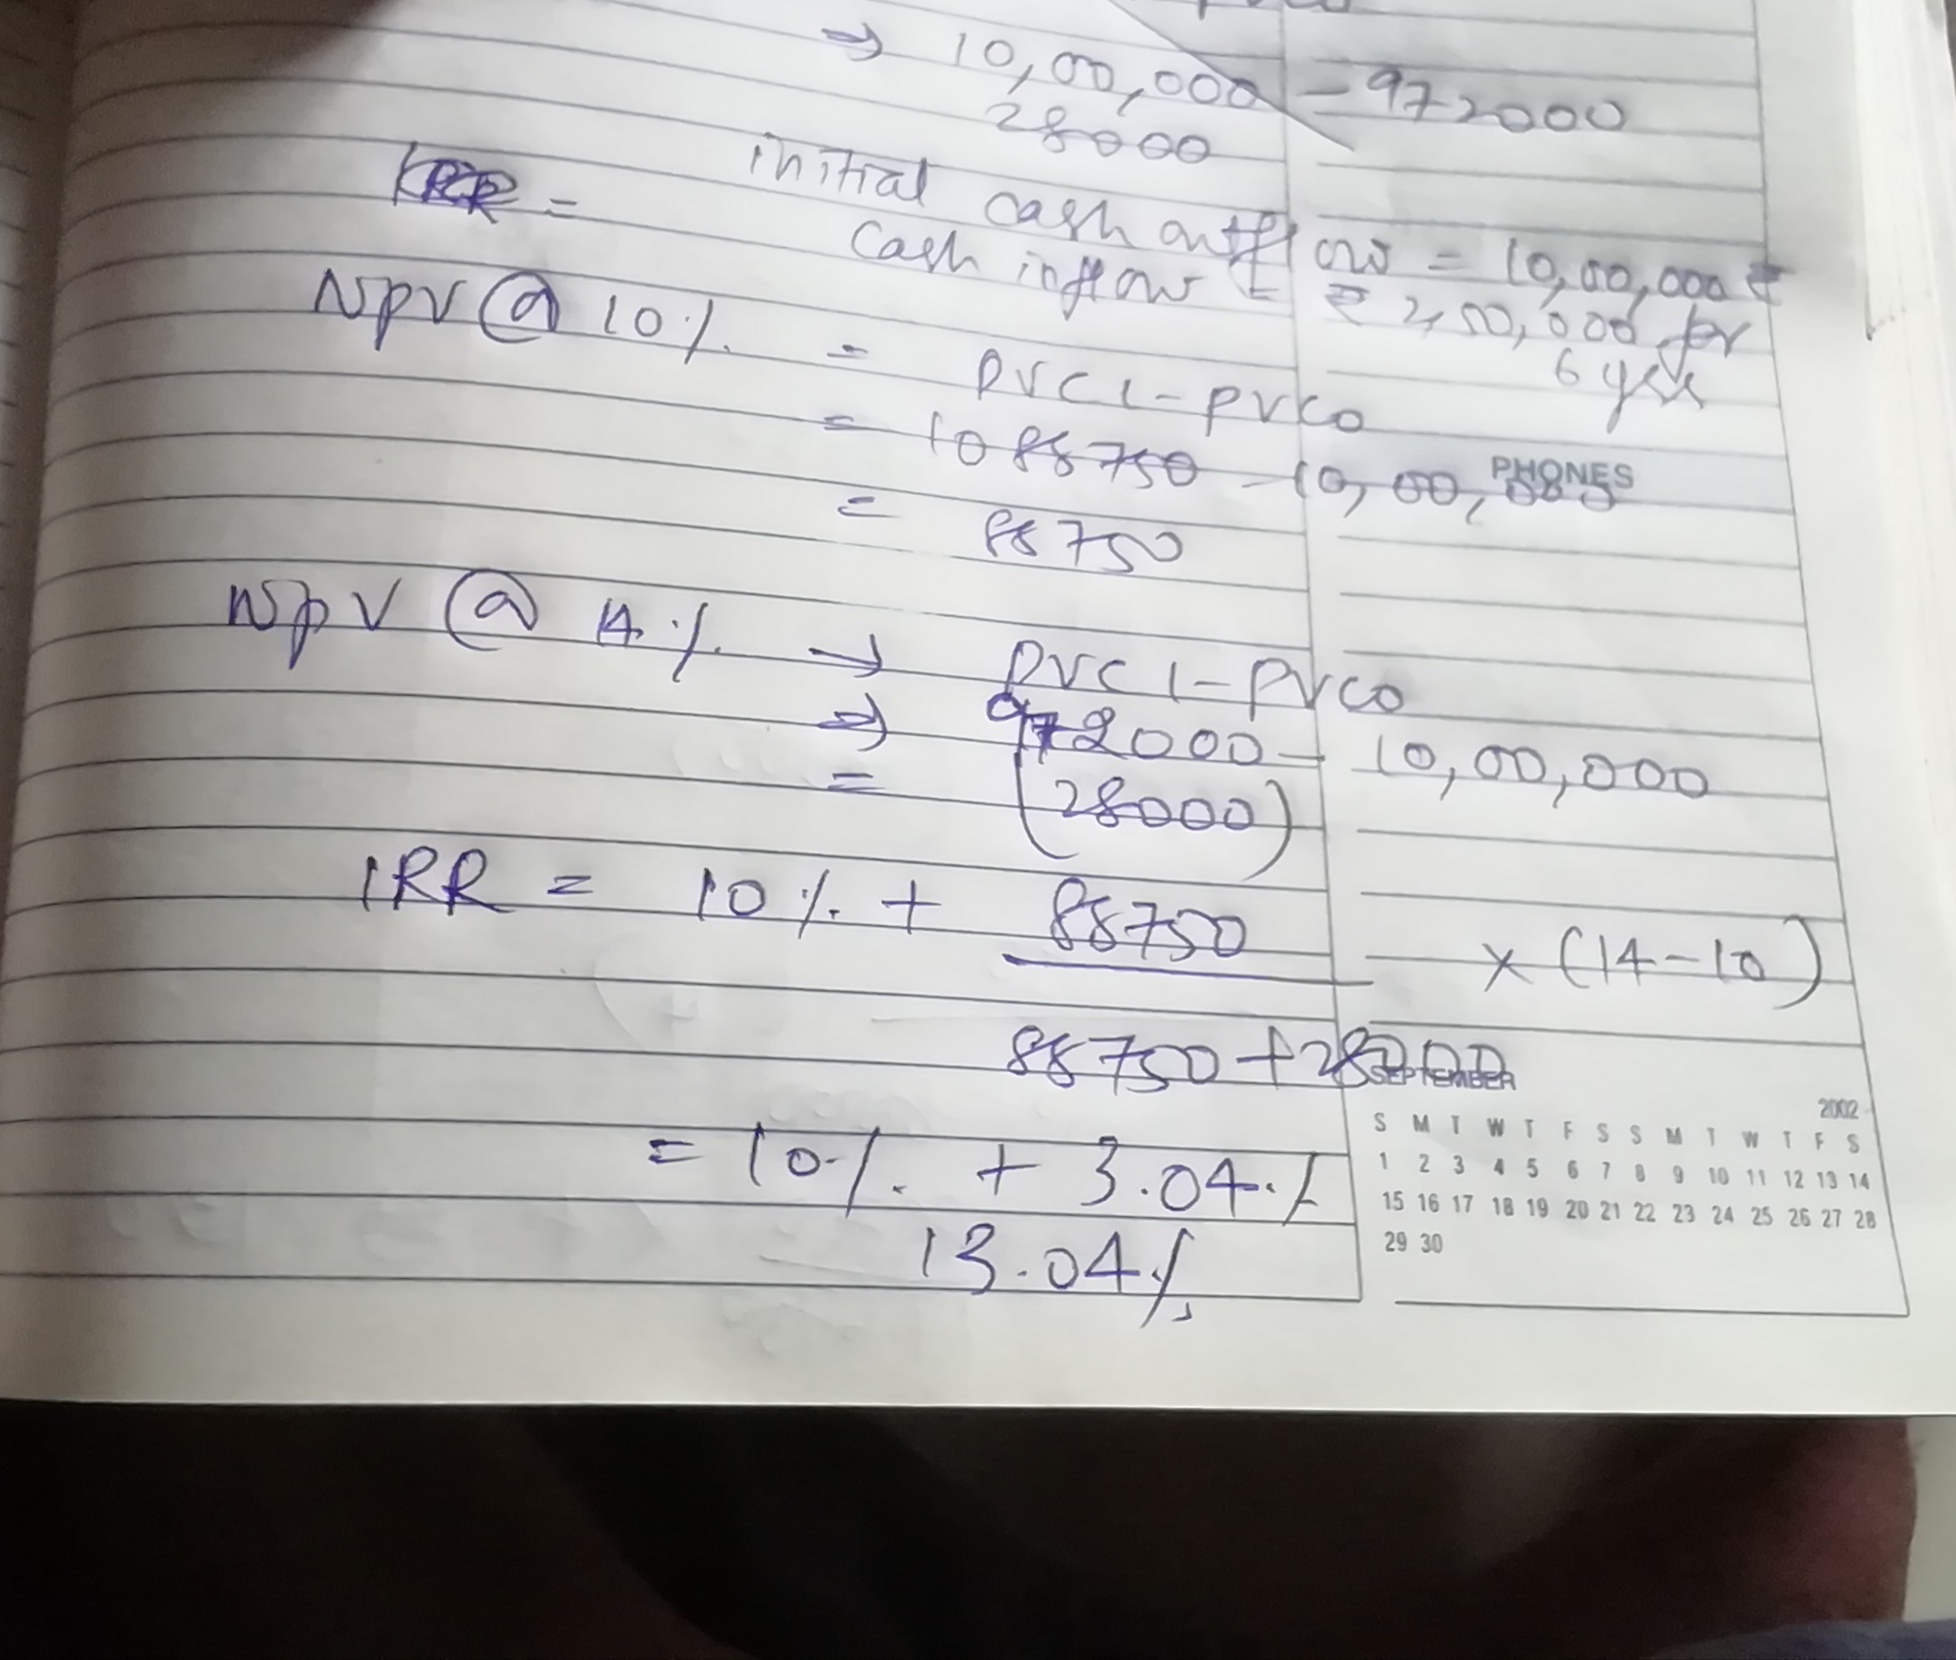 ⇒ 10,00,000 - 972000
28000
= initial cash outflow = 10,00,000 ₹
cash inflow = ₹ 2,50,000 for
6 yrs
NPV @ 10% = PVCI - PVCO
= 1088750 - 10,00,000
PHONES
= 88750
NPV @ 14% → PVCI - PVCO
⇒ 972000 - 10,00,000
= (28000)
IRR = 10% + 88750 × (14-10)
88750 + 28000
SEPTEMBER
2002
S M T W T F S S M T W T F S
1 2 3 4 5 6 7 8 9 10 11 12 13 14
15 16 17 18 19 20 21 22 23 24 25 26 27 28
29 30
= 10% + 3.04%
13.04%